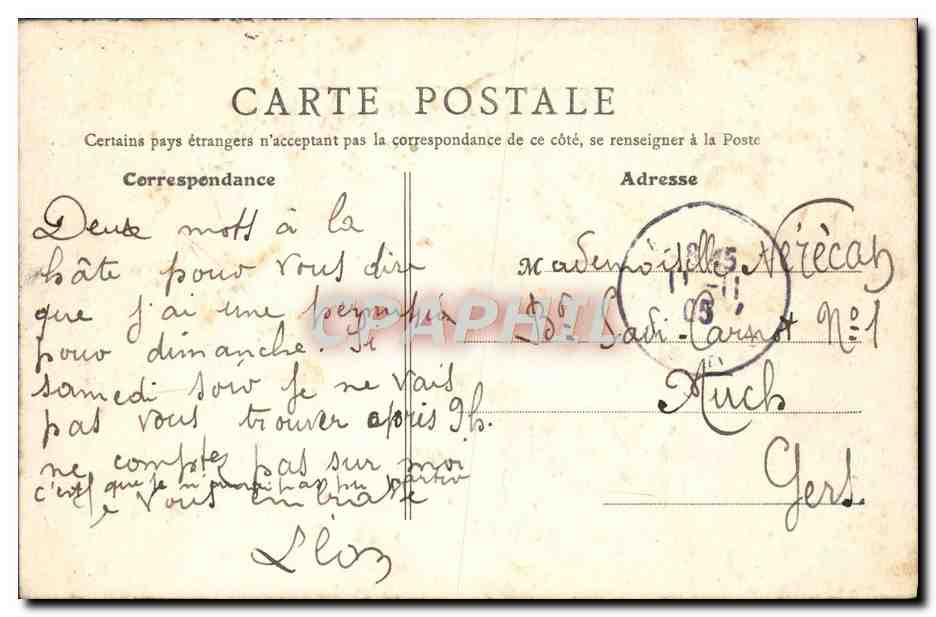 CARTE POSTALE
Certains pays étrangers n'acceptant pas la correspondance de ce côté, se renseigner à la Poste
Correspondance
Deux mots à la
hâte pour vous dire
que j'ai une permission
pour dimanche. Si
samedi soir je ne vais
pas vous trouver après 9h.
ne comptez pas sur moi
c'est que je n'aurai pas pu partir
Je vous embrasse
Léon
Adresse
Mademoiselle Nérècan
Bd Sadi-Carnot No 1
Auch
Gers.
8 45
11 -11
05
CPAPHIL